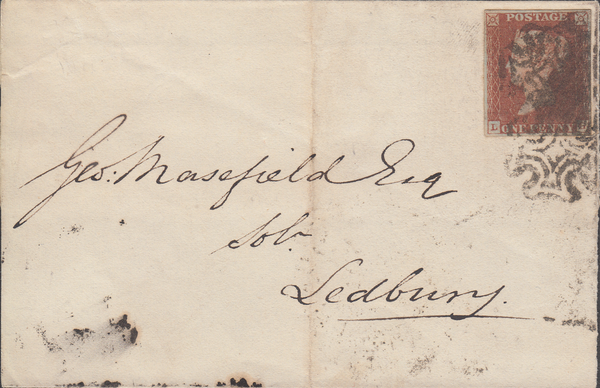 POSTAGE
L
ONE PENNY
Geo: Masefield Esq
Solr
Ledbury.